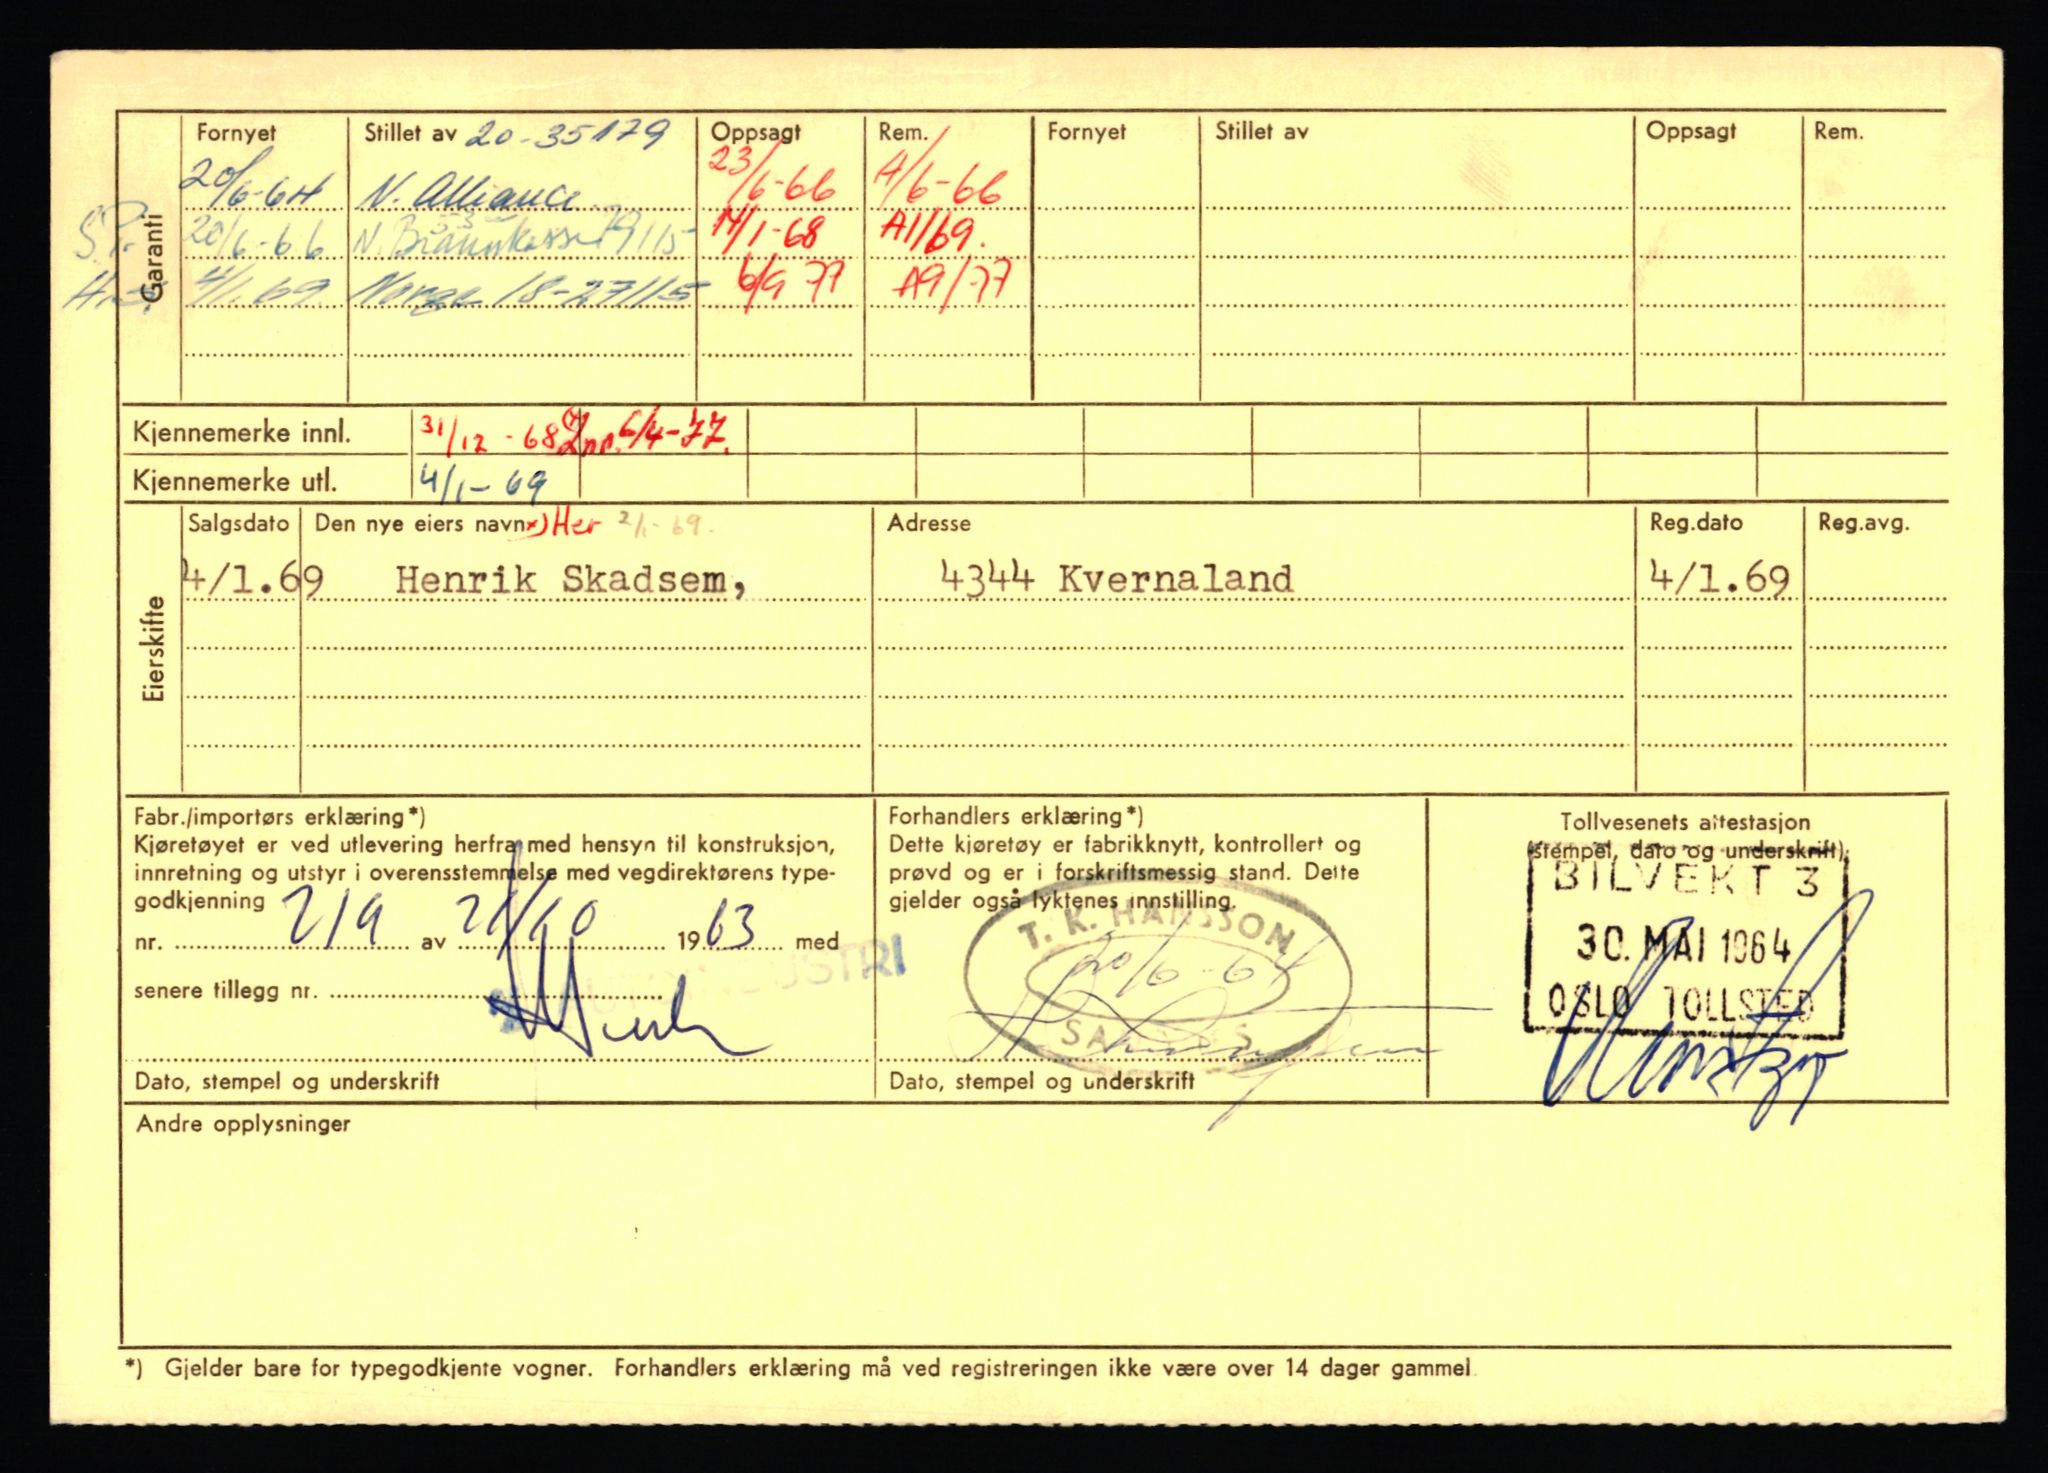 Fornyet Stillet av 20-35179 Oppsagt Rem. Fornyet Stillet av Oppsagt Rem.
20/6-64 N. Alliance 23/6-66 A/6-66
20/6-66 N. Brannkasse 79115 17/1-68 A1/69.
4/1.69 Norge 18-27115 6/9 77 A9/77
Garanti
Kjennemerke innl. 31/12-68 Inn. 6/4-77.
Kjennemerke utl. 4/1-69
Eierskifte
Salgsdato Den nye eiers navn x) Her 2/1-69. Adresse Reg.dato Reg.avg.
4/1.69 Henrik Skadsem, 4344 Kvernaland 4/1.69
Fabr./importørs erklæring*)
Kjøretøyet er ved utlevering herfra med hensyn til konstruksjon,
innretning og utstyr i overensstemmelse med vegdirektørens type-
godkjenning
nr. 219 av 21/10 1963 med
senere tillegg nr.
Dato, stempel og underskrift
Forhandlers erklæring*)
Dette kjøretøy er fabrikknytt, kontrollert og
prøvd og er i forskriftsmessig stand. Dette
gjelder også lyktenes innstilling.
T. K. HANSSON
20/6-64
Dato, stempel og underskrift
Tollvesenets attestasjon
(stempel, dato og underskrift)
BILVEKT 3
30. MAI 1964
OSLO TOLLSTED
Andre opplysninger
*) Gjelder bare for typegodkjente vogner. Forhandlers erklæring må ved registreringen ikke være over 14 dager gammel